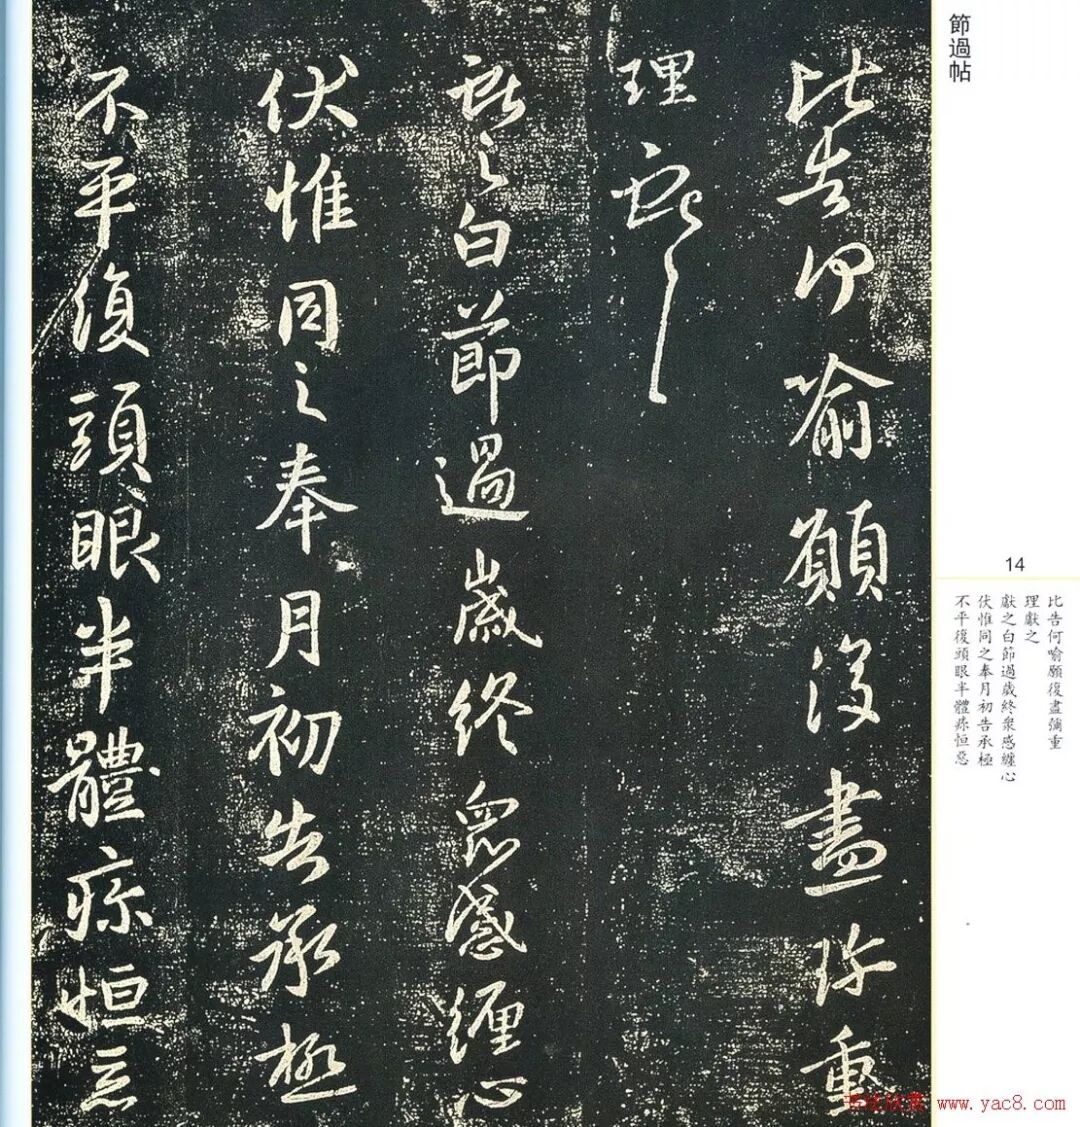 節過帖
比告何喻願復盡珎重
理獻之
獻之白節過歲終衆感纏心
伏惟同之奉月初告承極
不平復頭眼半體疼恒惡
14
比告何喻願復盡彌重
理獻之
獻之白節過歲終衆感纏心
伏惟同之奉月初告承極
不平復頭眼半體疼恒惡
书法欣赏 www.yac8.com